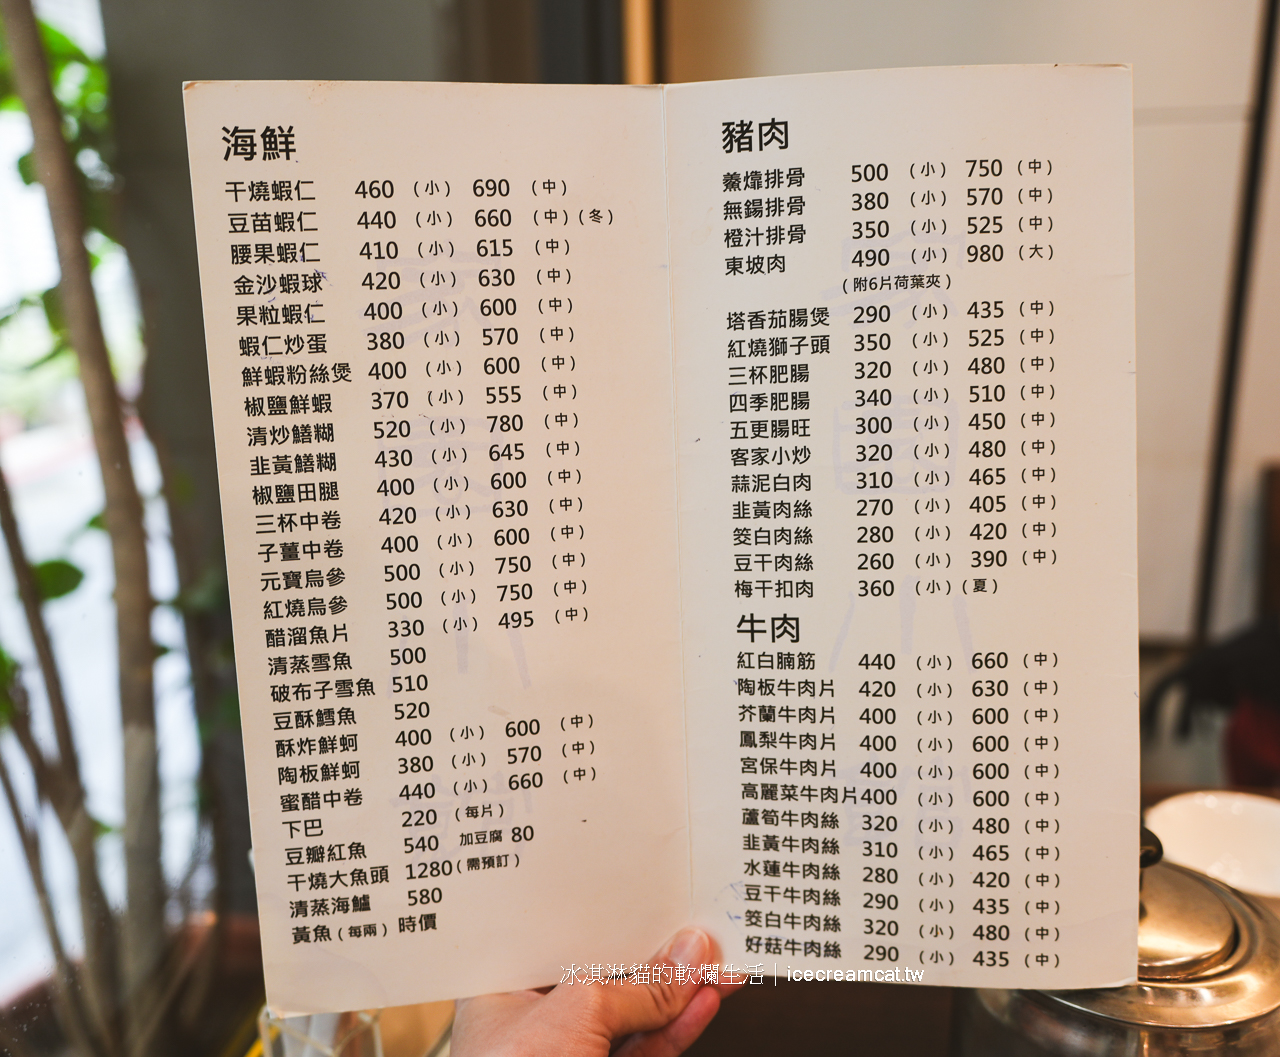 海鮮
干燒蝦仁 460 (小) 690 (中)
豆苗蝦仁 440 (小) 660 (中)(冬)
腰果蝦仁 410 (小) 615 (中)
金沙蝦球 420 (小) 630 (中)
果粒蝦仁 400 (小) 600 (中)
蝦仁炒蛋 380 (小) 570 (中)
鮮蝦粉絲煲 400 (小) 600 (中)
椒鹽鮮蝦 370 (小) 555 (中)
清炒鱔糊 520 (小) 780 (中)
韭黃鱔糊 430 (小) 645 (中)
椒鹽田腿 400 (小) 600 (中)
三杯中卷 420 (小) 630 (中)
子薑中卷 400 (小) 600 (中)
元寶烏參 500 (小) 750 (中)
紅燒烏參 500 (小) 750 (中)
醋溜魚片 330 (小) 495 (中)
清蒸雪魚 500
破布子雪魚 510
豆酥鱈魚 520
酥炸鮮蚵 400 (小) 600 (中)
陶板鮮蚵 380 (小) 570 (中)
蜜醋中卷 440 (小) 660 (中)
下巴 220 (每片)
豆瓣紅魚 540 加豆腐 80
干燒大魚頭 1280(需預訂)
清蒸海鱸 580
黃魚(每兩) 時價
豬肉
排骨 500 (小) 750 (中)
無錫排骨 380 (小) 570 (中)
橙汁排骨 350 (小) 525 (中)
東坡肉 490 (小) 980 (大)
(附6片荷葉夾)
塔香茄腸煲 290 (小) 435 (中)
紅燒獅子頭 350 (小) 525 (中)
三杯肥腸 320 (小) 480 (中)
四季肥腸 340 (小) 510 (中)
五更腸旺 300 (小) 450 (中)
客家小炒 320 (小) 480 (中)
蒜泥白肉 310 (小) 465 (中)
韭黃肉絲 270 (小) 405 (中)
筊白肉絲 280 (小) 420 (中)
豆干肉絲 260 (小) 390 (中)
梅干扣肉 360 (小)(夏)
牛肉
紅白腩筋 440 (小) 660 (中)
陶板牛肉片 420 (小) 630 (中)
芥蘭牛肉片 400 (小) 600 (中)
鳳梨牛肉片 400 (小) 600 (中)
宮保牛肉片 400 (小) 600 (中)
高麗菜牛肉片400 (小) 600 (中)
蘆筍牛肉絲 320 (小) 480 (中)
韭黃牛肉絲 310 (小) 465 (中)
水蓮牛肉絲 280 (小) 420 (中)
豆干牛肉絲 290 (小) 435 (中)
筊白牛肉絲 320 (小) 480 (中)
好菇牛肉絲 290 (小) 435 (中)
冰淇淋貓的軟爛生活｜icecreamcat.tw